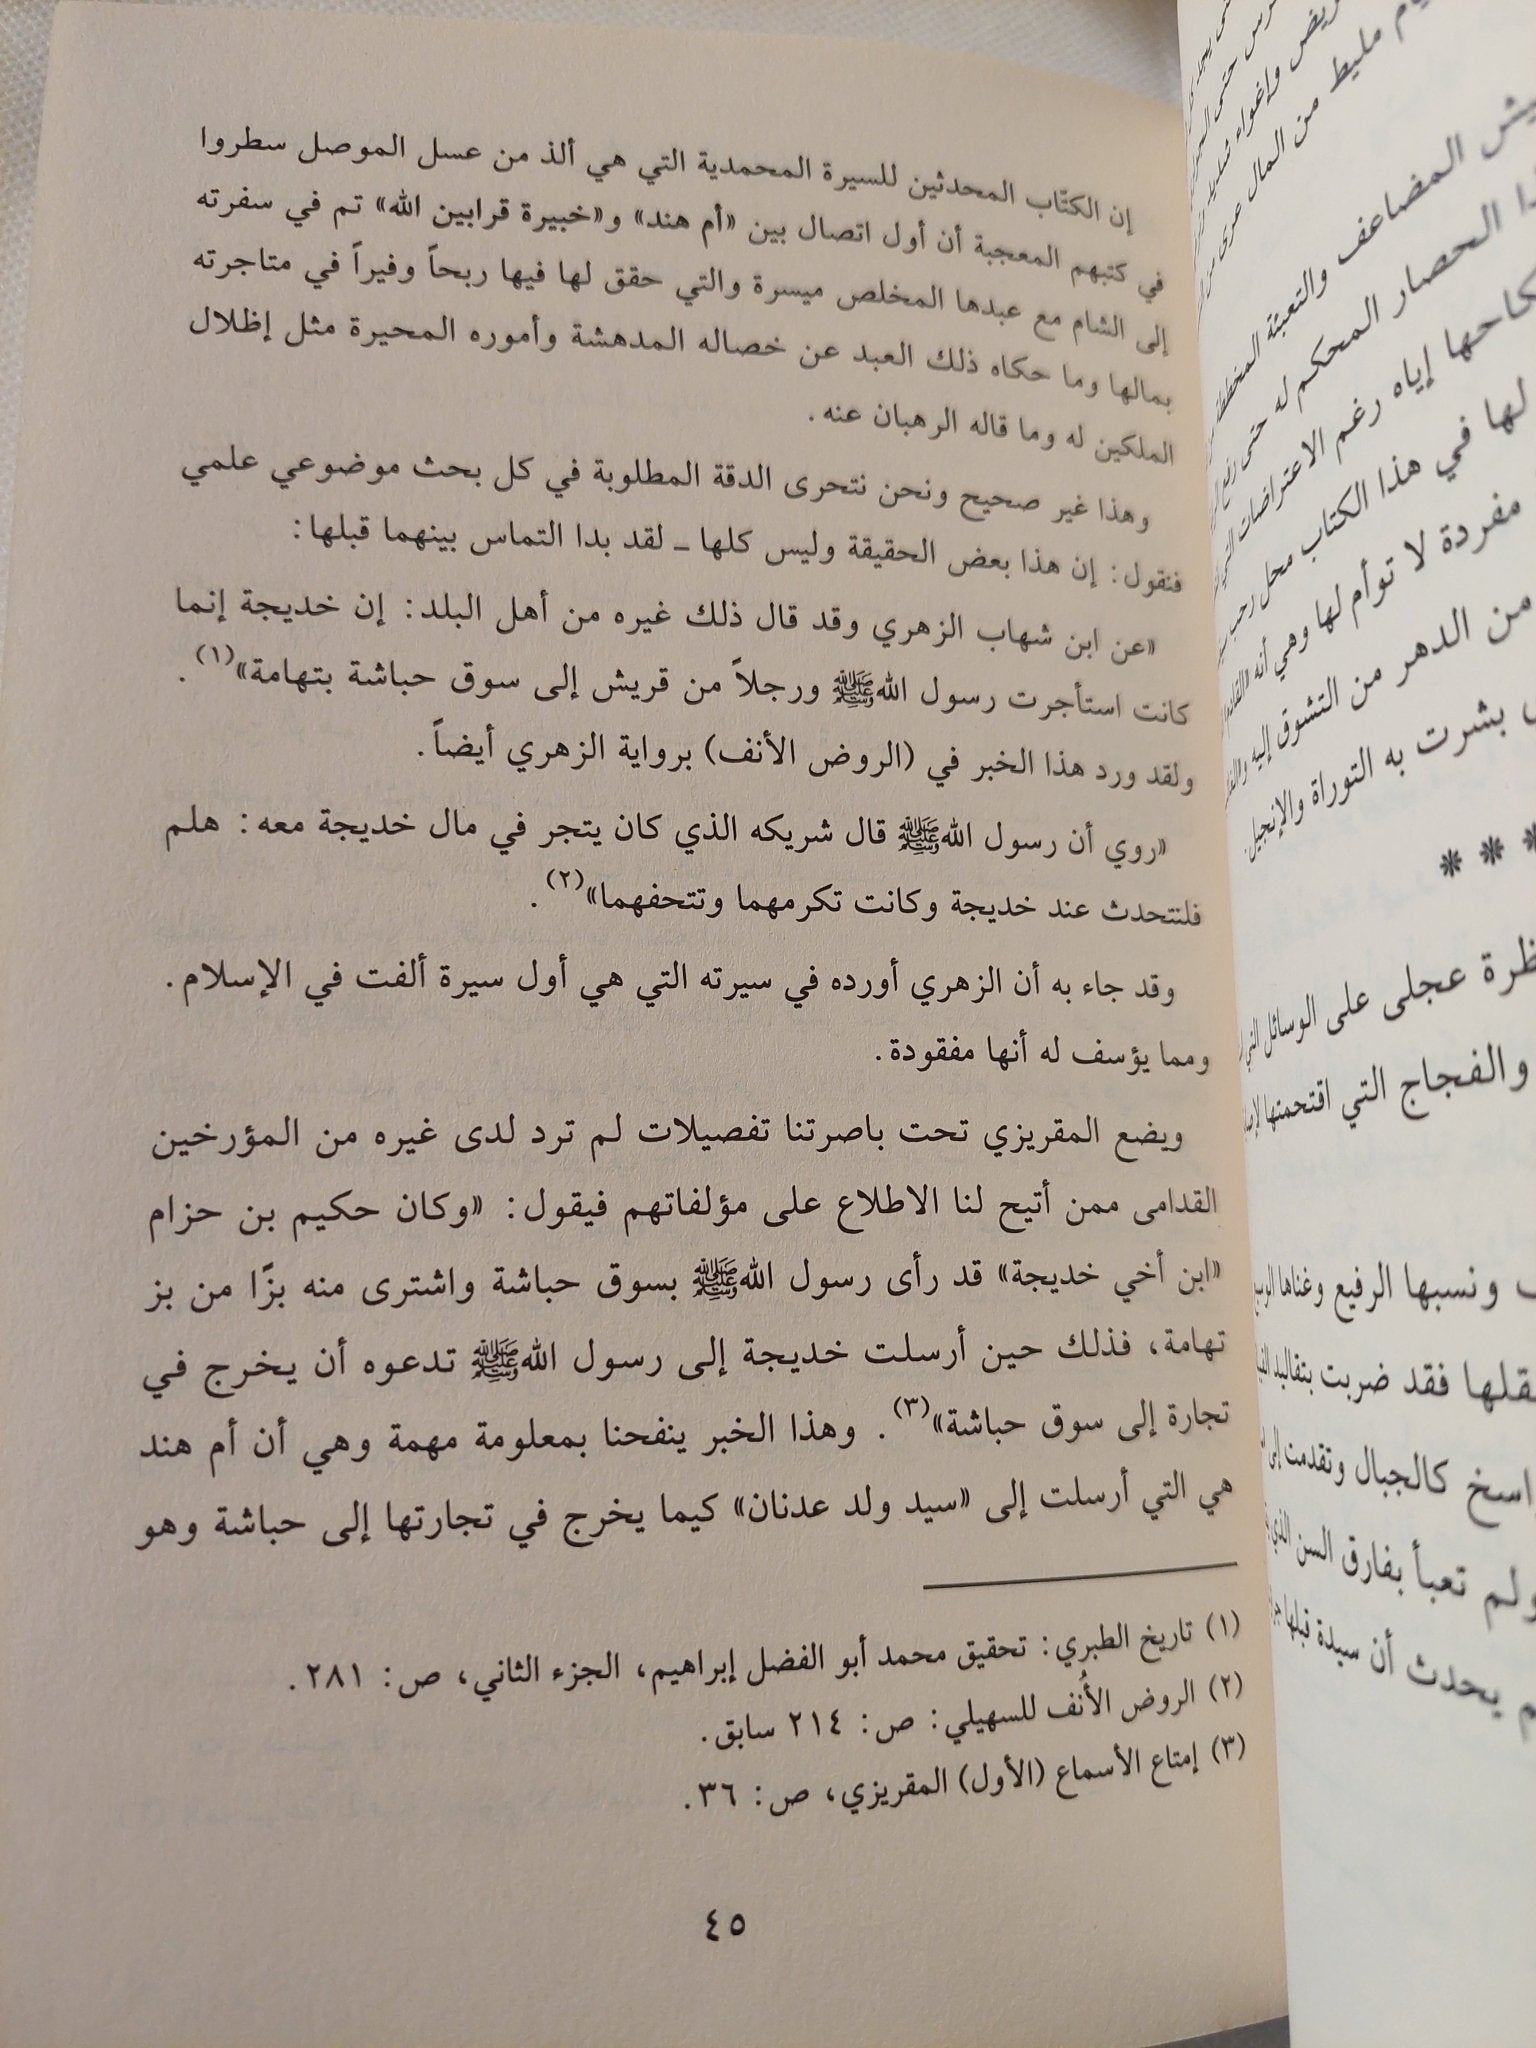 إن الكتّاب المحدثين للسيرة المحمدية التي هي ألذ من عسل الموصل سطروا
في كتبهم المعجبة أن أول اتصال بين «أم هند» و«خبيرة قرابين الله» تم في سفرته
إلى الشام مع عبدها المخلص ميسرة والتي حقق لها فيها ربحاً وفيراً في متاجرته
بمالها وما حكاه ذلك العبد عن خصاله المدهشة وأموره المحيرة مثل إظلال
الملكين له وما قاله الرهبان عنه.
وهذا غير صحيح ونحن نتحرى الدقة المطلوبة في كل بحث موضوعي علمي
فنقول: إن هذا بعض الحقيقة وليس كلها ـ لقد بدا التماس بينهما قبلها:
«عن ابن شهاب الزهري وقد قال ذلك غيره من أهل البلد: إن خديجة إنما
كانت استأجرت رسول اللهﷺ ورجلاً من قريش إلى سوق حباشة بتهامة»(١).
ولقد ورد هذا الخبر في (الروض الأنف) برواية الزهري أيضاً.
«روي أن رسول اللهﷺ قال شريكه الذي كان يتجر في مال خديجة معه: هلم
فلنتحدث عند خديجة وكانت تكرمهما وتتحفهما»(٢).
وقد جاء به أن الزهري أورده في سيرته التي هي أول سيرة ألفت في الإسلام.
ومما يؤسف له أنها مفقودة.
ويضع المقريزي تحت باصرتنا تفصيلات لم ترد لدى غيره من المؤرخين
القدامى ممن أتيح لنا الاطلاع على مؤلفاتهم فيقول: «وكان حكيم بن حزام
«ابن أخي خديجة» قد رأى رسول اللهﷺ بسوق حباشة واشترى منه بزًا من بز
تهامة، فذلك حين أرسلت خديجة إلى رسول اللهﷺ تدعوه أن يخرج في
تجارة إلى سوق حباشة»(٣). وهذا الخبر ينفحنا بمعلومة مهمة وهي أن أم هند
هي التي أرسلت إلى «سيد ولد عدنان» كيما يخرج في تجارتها إلى حباشة وهو
(١) تاريخ الطبري: تحقيق محمد أبو الفضل إبراهيم، الجزء الثاني، ص: ٢٨١.
(٢) الروض الأُنف للسهيلي: ص: ٢١٤ سابق.
(٣) إمتاع الأسماع (الأول) المقريزي، ص: ٣٦.
٤٥
مليط من المال
المضاعف والتعبئة
الحصار المحكم له حتى
إياه رغم الاعتراضات
لها في هذا الكتاب محل
مفردة لا توأم لها وهي أنه
من الدهر من التشوق إليه
بشرت به التوراة والإنجيل.
* * *
عجلى على الوسائل
والفجاج التي اقتحمتها
ونسبها الرفيع وغناها
فقد ضربت بتقاليد
كالجبال وتقدمت
تعبأ بفارق السن الذي
يحدث أن سيدة قبلها